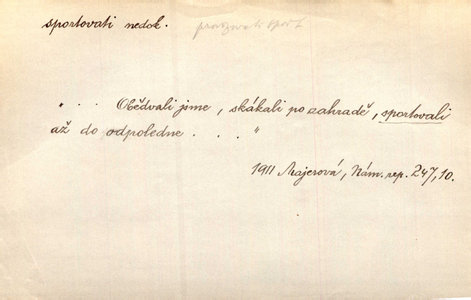 sportovati nedok. provozovati sport
„ . . . Obědvali jsme, skákali po zahradě, sportovali
až do odpoledne . . . "
1911 Majerová, Nám. rep. 247, 10.